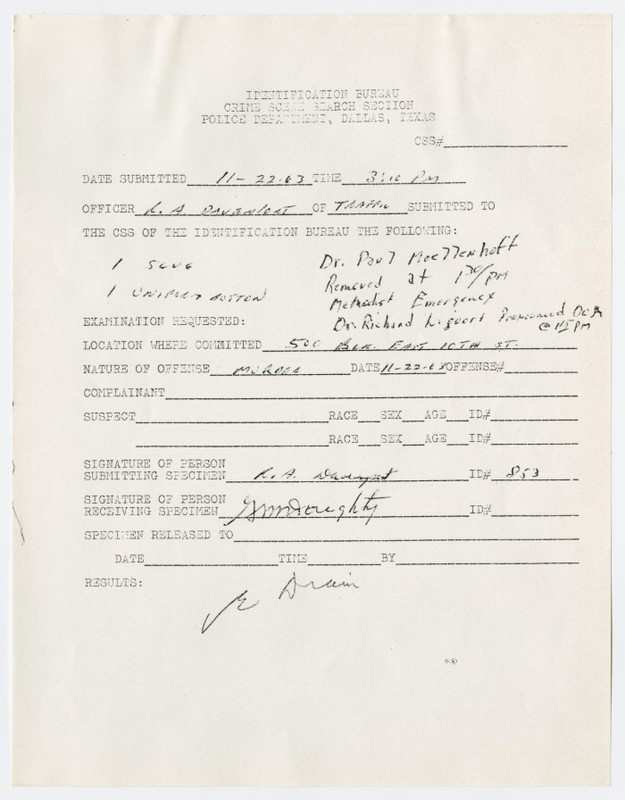 IDENTIFICATION BUREAU
CRIME SCENE SEARCH SECTION
POLICE DEPARTMENT, DALLAS, TEXAS
CSS#
DATE SUBMITTED 11-22-63 TIME 3:10 PM
OFFICER R. A. DAVENPORT OF TRAFFIC SUBMITTED TO
THE CSS OF THE IDENTIFICATION BUREAU THE FOLLOWING:
1 SLUG
1 UNIFORM BUTTON
Dr. Paul Moellenhoff
Removed at 1:30/PM
Methodist Emergency
Dr. Richard Liguori Pronounced DOA
@ 1:15 PM
EXAMINATION REQUESTED:
LOCATION WHERE COMMITTED 500 BLK. EAST 10TH ST.
NATURE OF OFFENSE MURDER DATE 11-22-63 OFFENSE#
COMPLAINANT
SUSPECT RACE SEX AGE ID#
RACE SEX AGE ID#
SIGNATURE OF PERSON
SUBMITTING SPECIMEN R. A. Davenport ID# 853
SIGNATURE OF PERSON
RECEIVING SPECIMEN Doughty ID#
SPECIMEN RELEASED TO
DATE TIME BY
RESULTS:
Drain